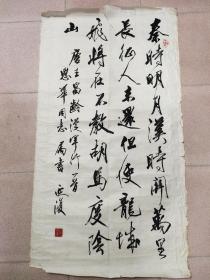 秦时明月漢時関萬里
長征人未還但使龍城
飛將在不教胡馬度陰
山 唐王昌齡漢軍行一首
思華同志属書